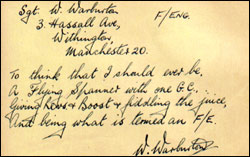 Sgt. W. Warburton F/ENG.
3. Hassall Ave,
Withington,
Manchester 20.
To think that I should ever be,
A Flying Spanner with one G.C...
Giving Revs & Boost & fiddling the juice,
And being what is termed an F/E.
W. Warburton